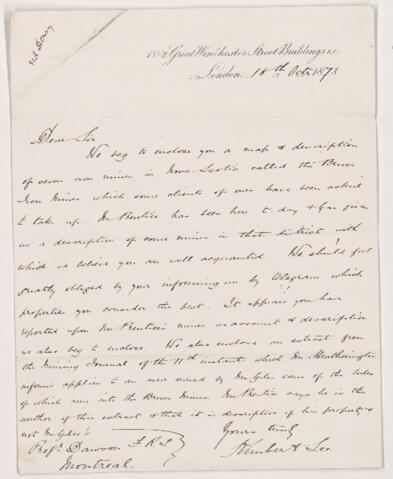 18 & 2 Great Winchester Street Buildings E.C.
London 16th Octr 1873
Dear Sir
We beg to enclose you a map & description
of seven iron mines in Nova Scotia called the
Iron Mines which some clients of ours have been asked
to take up. Mr Prentice has been here to-day & has given
us a description of some mines in that district with
which we believe you are well acquainted We should feel
greatly obliged by your informing us by telegram which
properties you consider the best. It appears you have
reported upon Mr Prentice's mines an account & description
we also beg to enclose. We also enclose an extract from
the Mining Journal of the 11th instant which Mr
informs applies to an area owned by Mr some of the lodes
of which run into the Mines. Mr Prentice says he is the
author of this extract & that it is descriptive of his property &
not
Yours truly
Profr Dawson F.R.S.
Montreal.